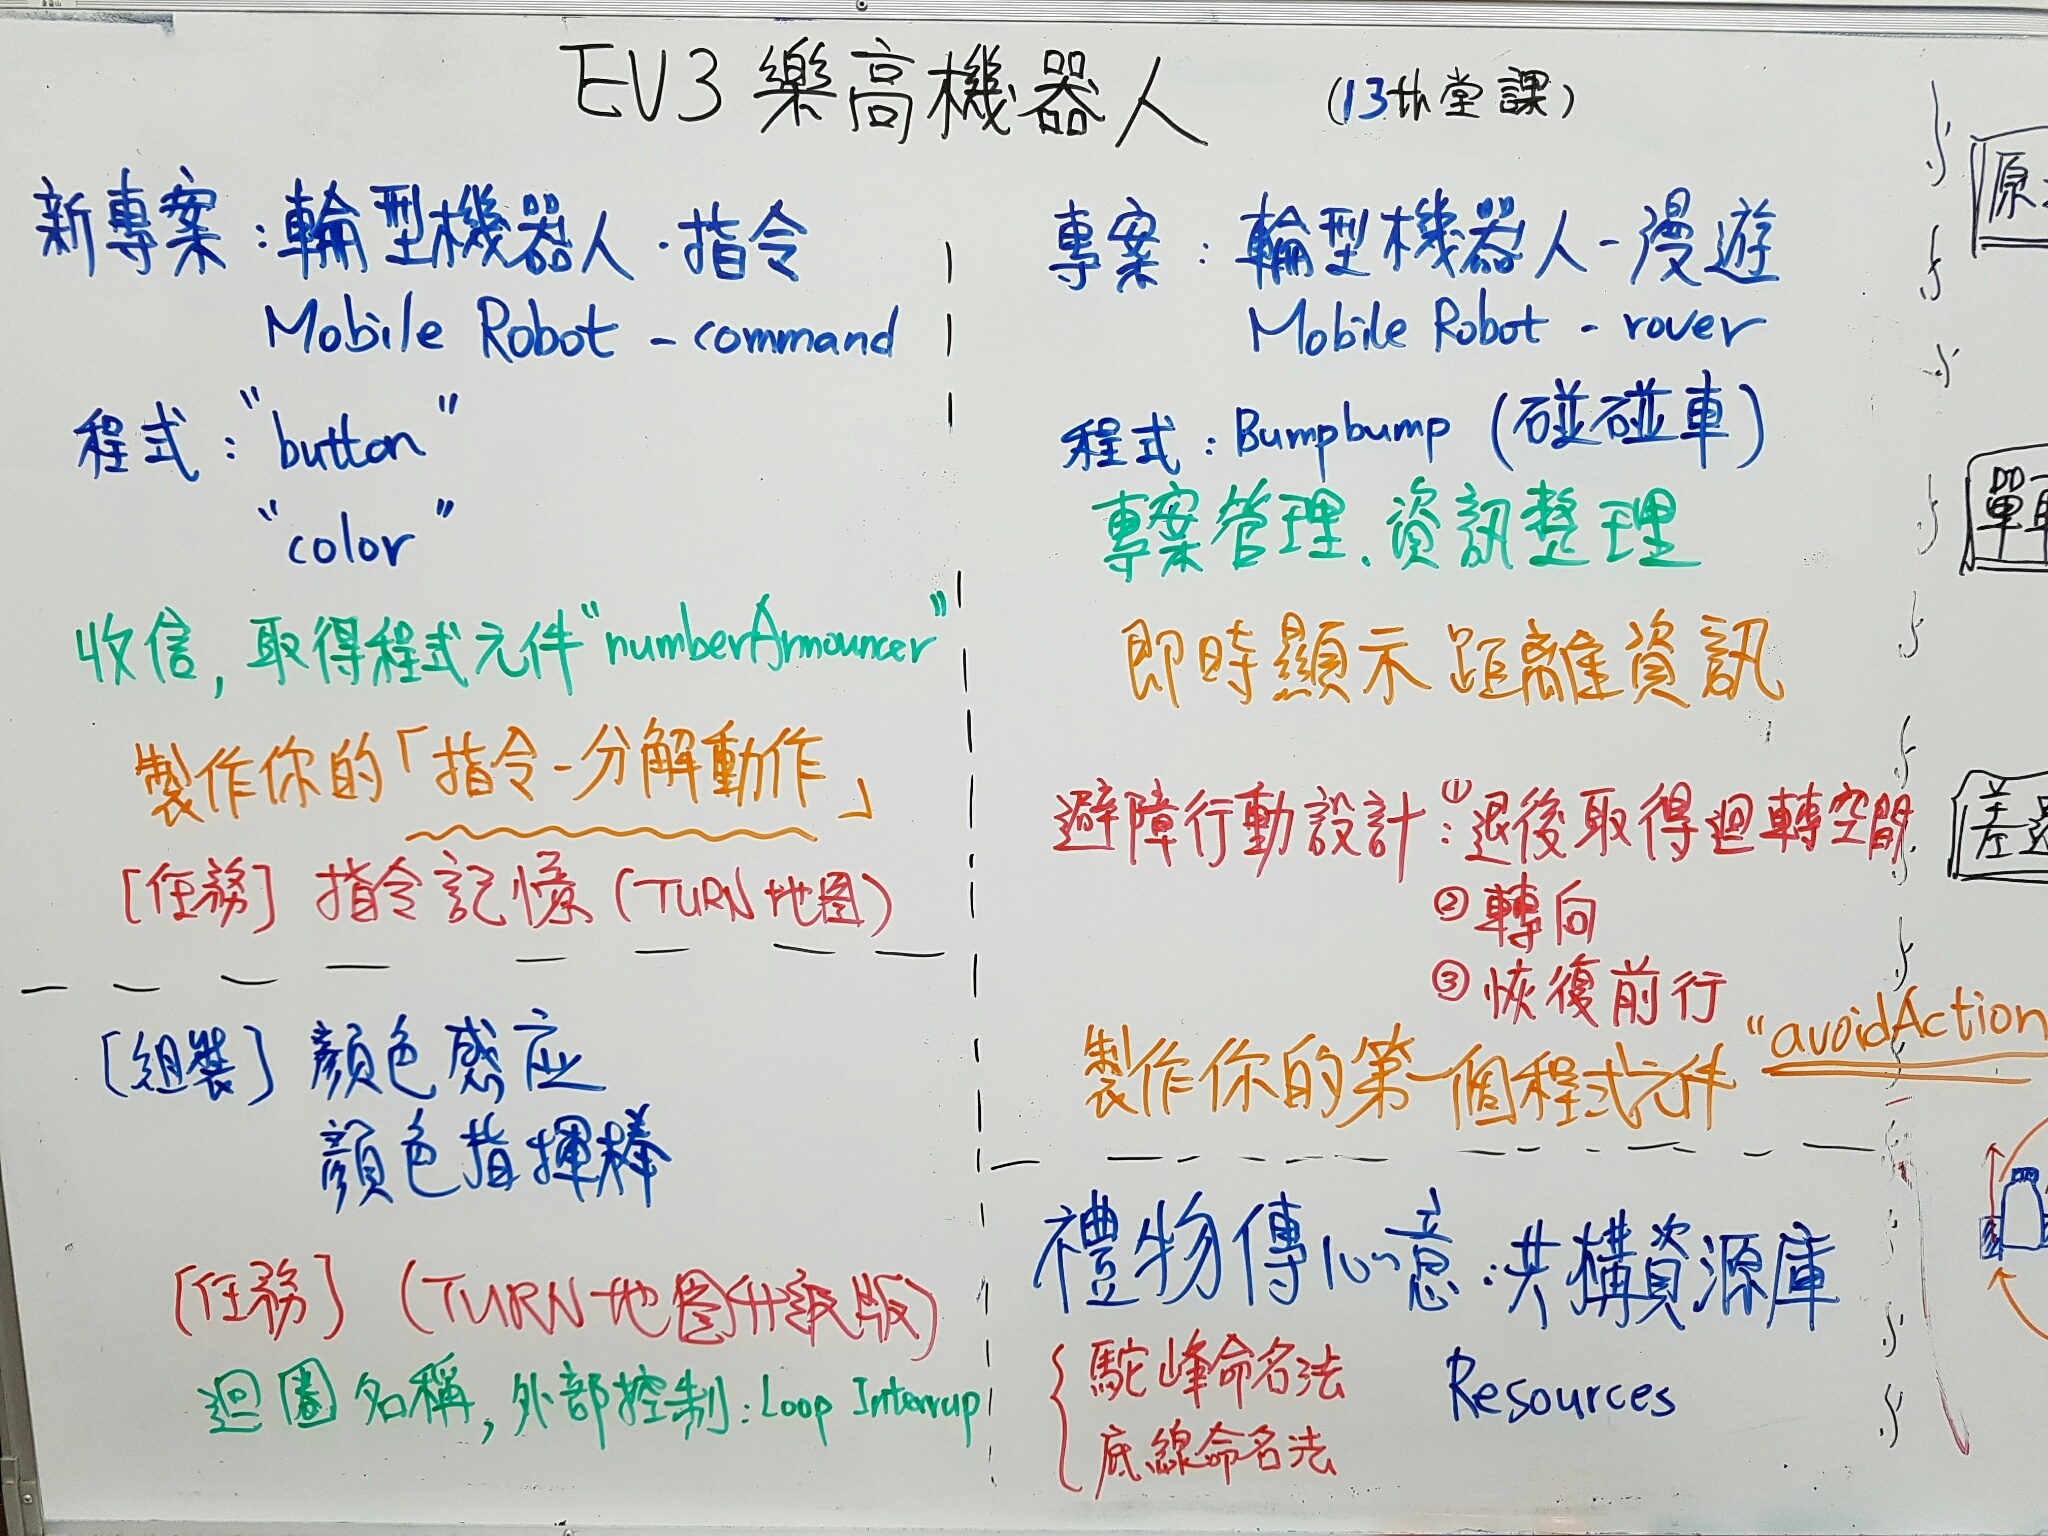 EV3 樂高機器人 (13th堂課)
新專案：輪型機器人·指令
Mobile Robot - command
程式："button"
"color"
收信，取得程式元件"numberAnnouncer"
製作你的「指令-分解動作」
[任務] 指令記憶 (TURN地圖)
[組裝] 顏色感应
顏色指揮棒
[任務] (TURN地圖升級版)
迴圈名稱，外部控制：Loop Interrup
專案：輪型機器人-漫遊
Mobile Robot - rover
程式：Bumpbump (碰碰車)
專案管理、資訊整理
即時顯示距離資訊
避障行動設計：①退後取得迴轉空間
②轉向
③恢復前行
製作你的第一個程式元件 "avoidAction
禮物傳心意：共構資源庫
駝峰命名法 Resources
底線命名法
原
單
差